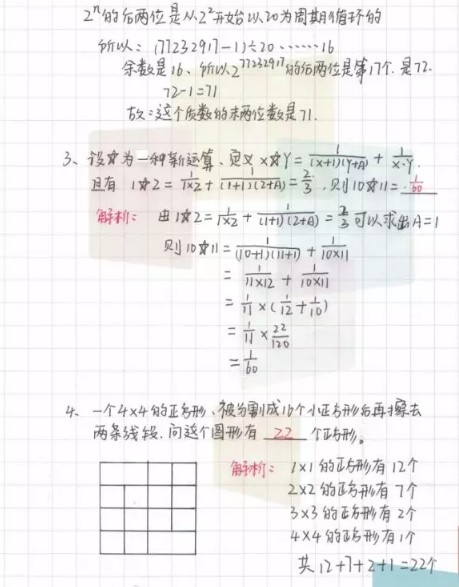 2ⁿ的后两位是从2²开始以20为周期循环的
所以：(77232917-1)÷20……16
余数是16、所以2^77232917的后两位是第17个.是72.
72-1=71
故：这个质数的末两位数是71.
3、设☆为一种新运算、定义 X☆Y = 1/((X+1)(Y+A)) + 1/(X·Y).
且有 1☆2 = 1/(1×2) + 1/((1+1)(2+A)) = 2/3 .则10☆11 = 1/60
解析： 由1☆2 = 1/(1×2) + 1/((1+1)(2+A)) = 2/3 可以求出A=1
则10☆11 = 1/((10+1)(11+1)) + 1/(10×11)
= 1/(11×12) + 1/(10×11)
= 1/11 × (1/12 + 1/10)
= 1/11 × 22/120
= 1/60
4、一个4×4的正方形、被分割成16个小正方形后再擦去
两条线段.问这个图形有 22 个正方形。
解析： 1×1的正方形有12个
2×2的正方形有7个
3×3的正方形有2个
4×4的正方形有1个
共12+7+2+1=22个